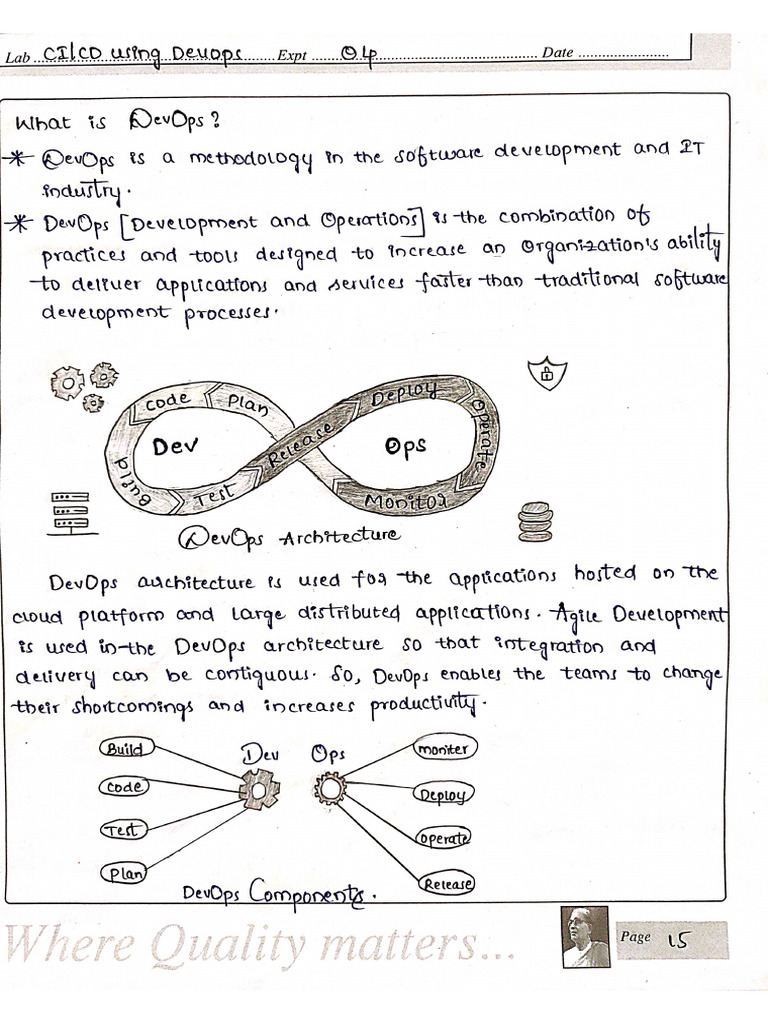 Lab CI/CD using Devops Expt 04 Date
What is DevOps?
* DevOps is a methodology in the software development and IT
industry.
* DevOps [Development and Operations] is the combination of
practices and tools designed to increase an Organization's ability
to deliver applications and services faster than traditional software
development processes.
Code Plan Deploy Operate
Dev Release Ops
Build Test Monitor
DevOps Architecture
DevOps architecture is used for the applications hosted on the
cloud platform and large distributed applications. Agile Development
is used in the DevOps architecture so that integration and
delivery can be contiguous. So, DevOps enables the teams to change
their shortcomings and increases productivity.
Build Dev Ops moniter
Code Deploy
Test Operate
Plan Release
DevOps Components.
Where Quality matters...
Page 15